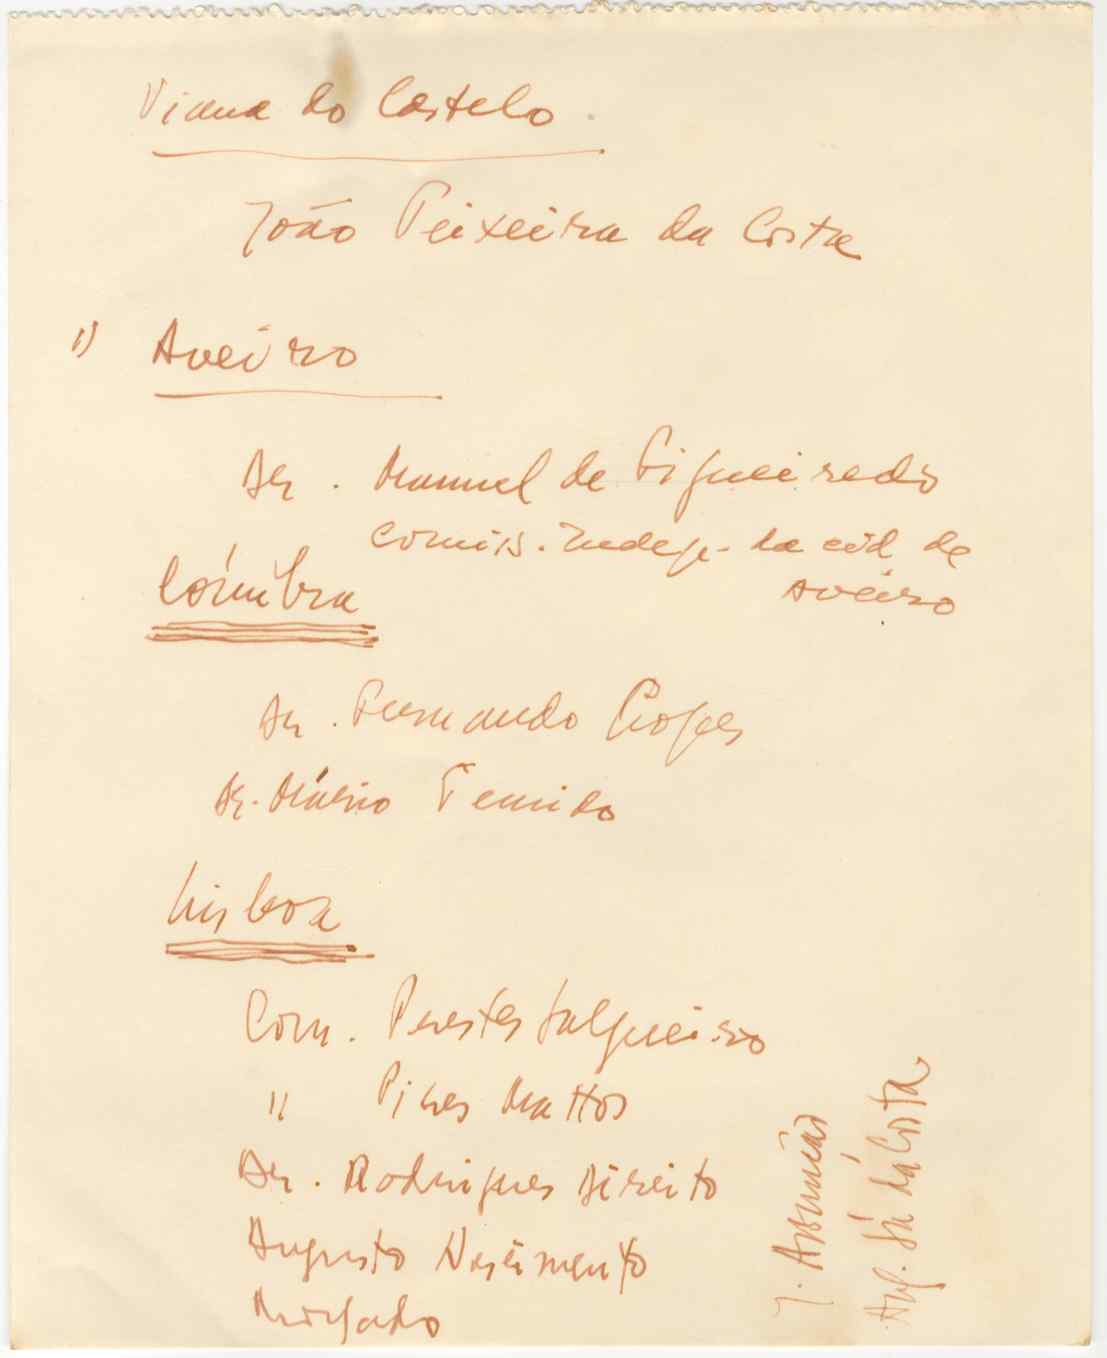 Viana do Castelo
João Teixeira da Costa
1) Aveiro
Dr. Manuel de Figueiredo
Comis. Indep. da cid. de
Aveiro
Coimbra
Dr. Fernando Lopes
Dr. Mário Temido
Lisboa
Com. Prestes Salgueiro
" Pires Mattos
Dr. Rodrigues Direito
Augusto Nascimento
Morgado
J. Assunção
Aug. Sá da Costa